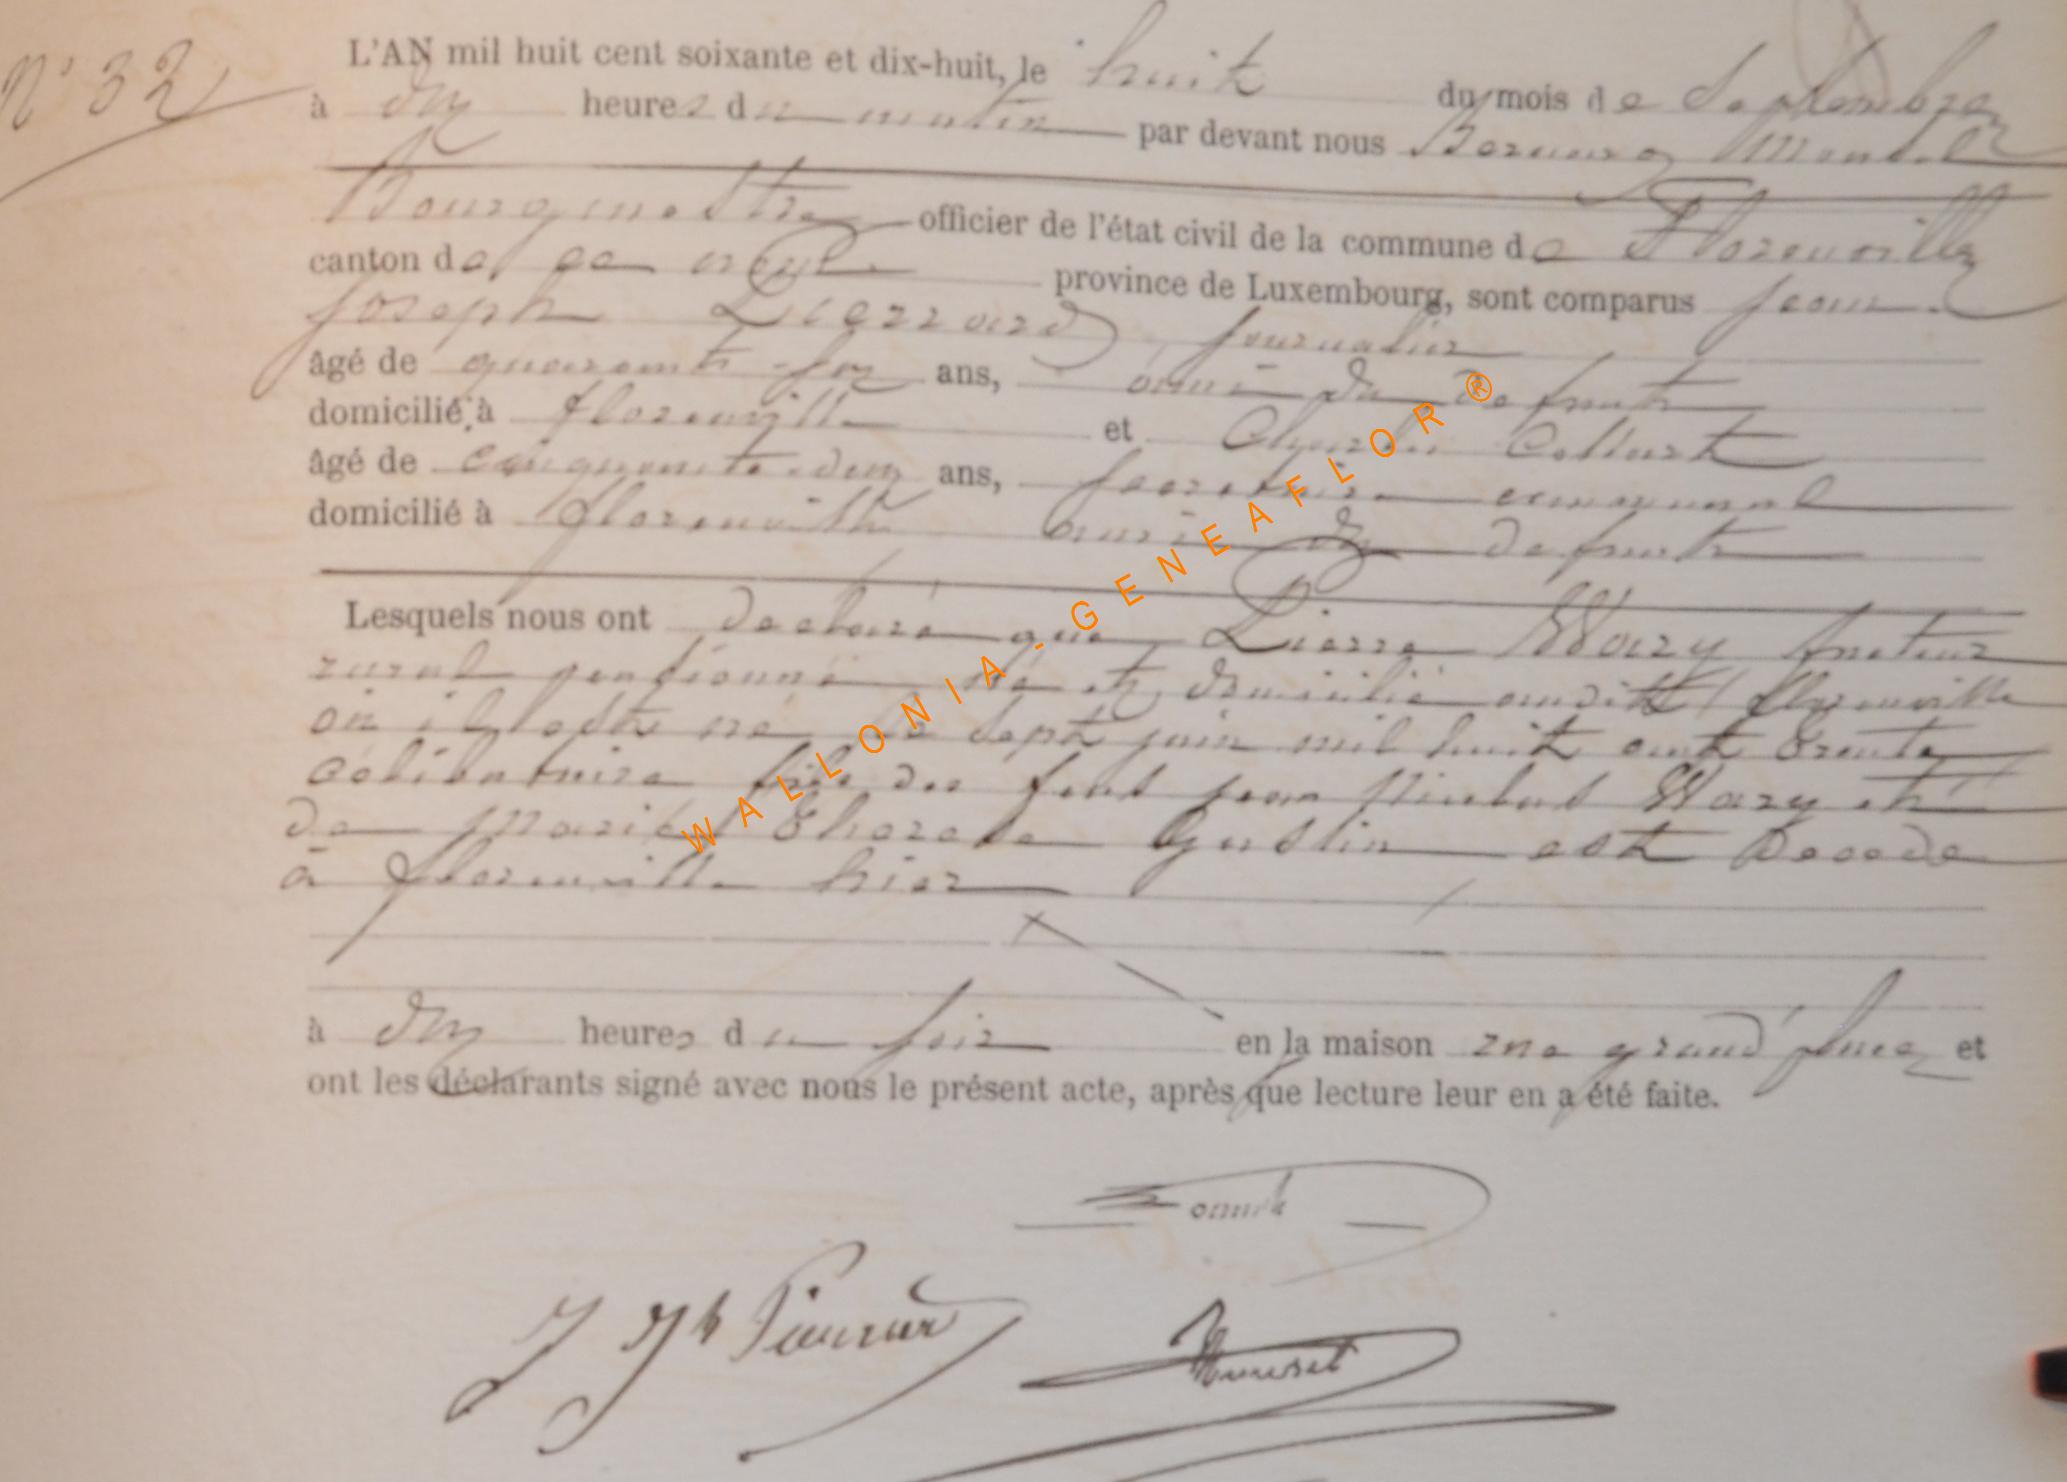 N° 32
L'AN mil huit cent soixante et dix-huit, le huit du mois de Septembre
à dix heures du matin par devant nous
Bourgmestre officier de l'état civil de la commune de Florenville
canton de ce nom province de Luxembourg, sont comparus jean
joseph Pierrard journalier
âgé de quarante-six ans, ami du defunt
domicilié à florenville et Charles Collart
âgé de cinquante-deux ans, secretaire communal
domicilié à florenville ami du defunt
Lesquels nous ont declaré que Pierre Wary facteur
rural pensionné né et domicilié audit florenville
où il est né le sept juin mil huit cent trente
célibataire fils des feus jean Nicolas Wary et
de Marie Therese Guslin est décédé
à florenville hier
à dix heures du soir en la maison rue grand'place et
ont les déclarants signé avec nous le présent acte, après que lecture leur en a été faite.
WALLONIA-GENEAFLOR®